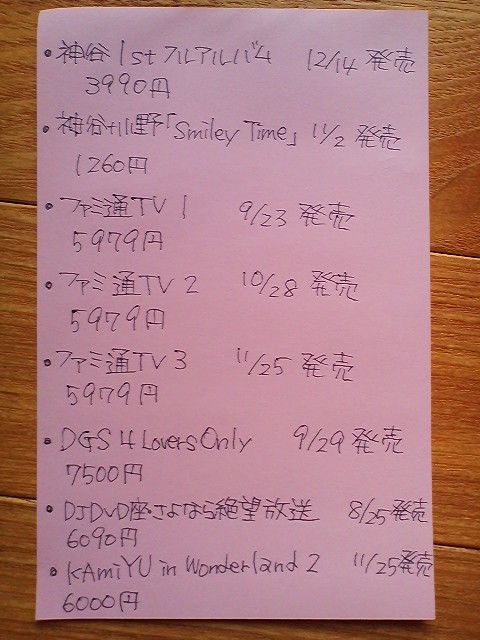 • 神谷 1st フルアルバム 12/14 発売
3990円
• 神谷+小野「Smiley Time」 11/2 発売
1260円
• ファミ通TV 1 9/23 発売
5979円
• ファミ通TV 2 10/28 発売
5979円
• ファミ通TV 3 11/25 発売
5979円
• DGS 4 Lovers Only 9/29 発売
7500円
• DJDVD座・さよなら絶望放送 8/25発売
6090円
• KAmiYU in Wonderland 2 11/25発売
6000円